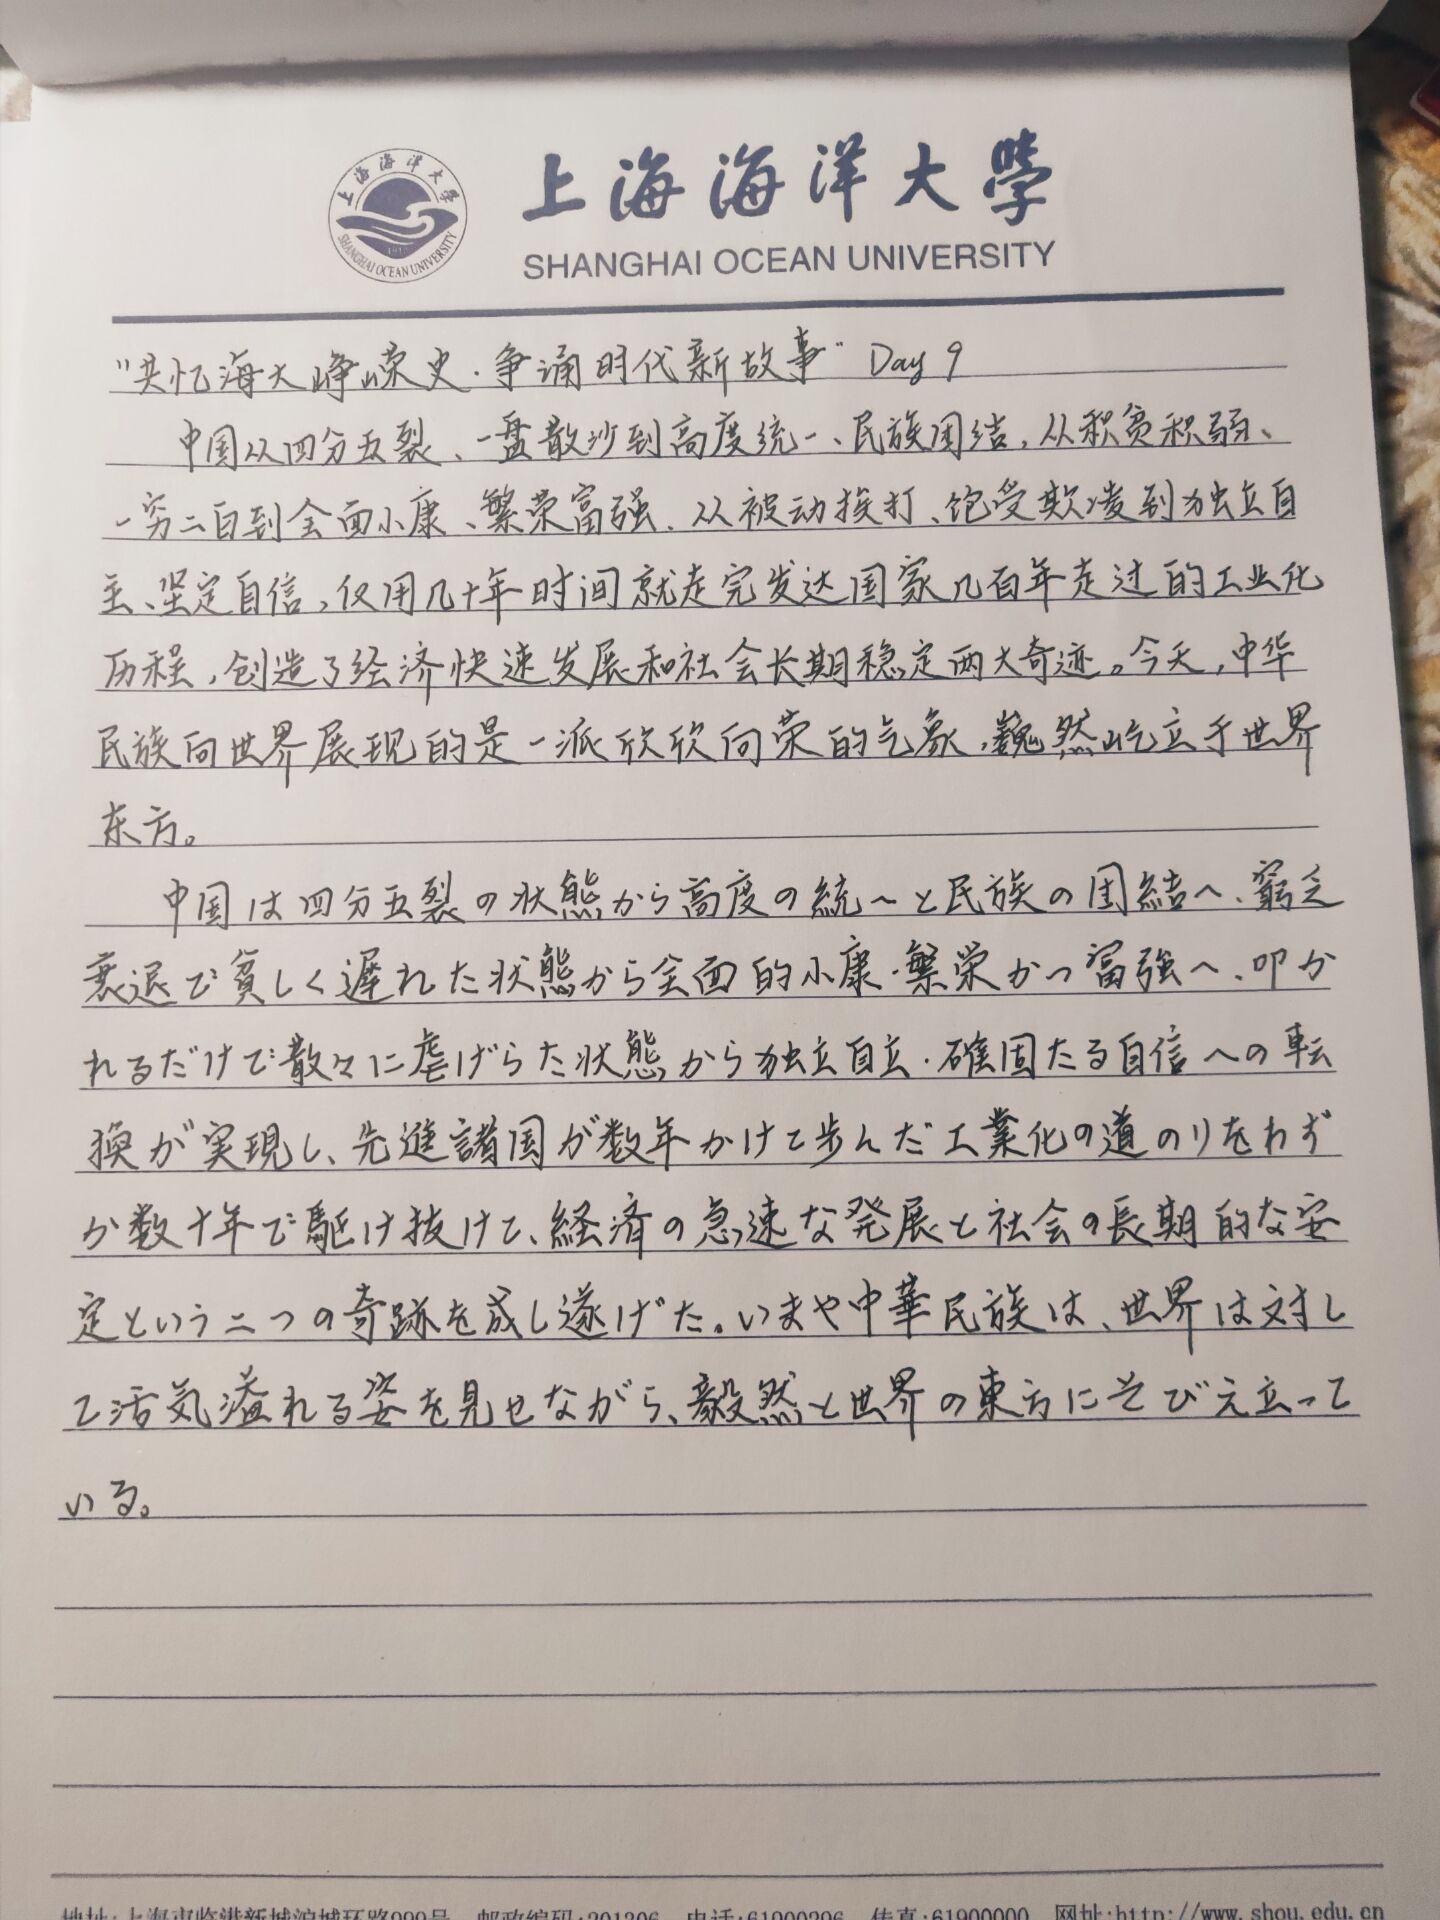 上海海洋大學
SHANGHAI OCEAN UNIVERSITY
上海海洋大學
SHANGHAI OCEAN UNIVERSITY
"共忆海大峥嵘史·争诵时代新故事" Day 9
中国从四分五裂、一盘散沙到高度统一、民族团结,从积贫积弱、
一穷二白到全面小康、繁荣富强,从被动挨打、饱受欺凌到独立自
主、坚定自信,仅用几十年时间就走完发达国家几百年走过的工业化
历程,创造了经济快速发展和社会长期稳定两大奇迹。今天,中华
民族向世界展现的是一派欣欣向荣的气象,巍然屹立于世界
东方。
中国は四分五裂の状態から高度の統一と民族の団結へ、窮乏
衰退で貧しく遅れた状態から全面的小康·繁栄かつ富強へ、叩か
れるだけで散々に虐げらた状態から独立自立·確固たる自信への転
換が実現し、先進諸国が数年かけて歩んだ工業化の道のりをわず
か数十年で駆け抜けて、経済の急速な発展と社会の長期的な安
定という二つの奇跡を成し遂げた。いまや中華民族は、世界は対し
て活気溢れる姿を見せながら、毅然と世界の東方にそびえ立って
いる。
地址:上海市临港新城沪城环路999号 邮政编码:201306 电话:61900296 传真:61900000 网址:http://www.shou.edu.cn